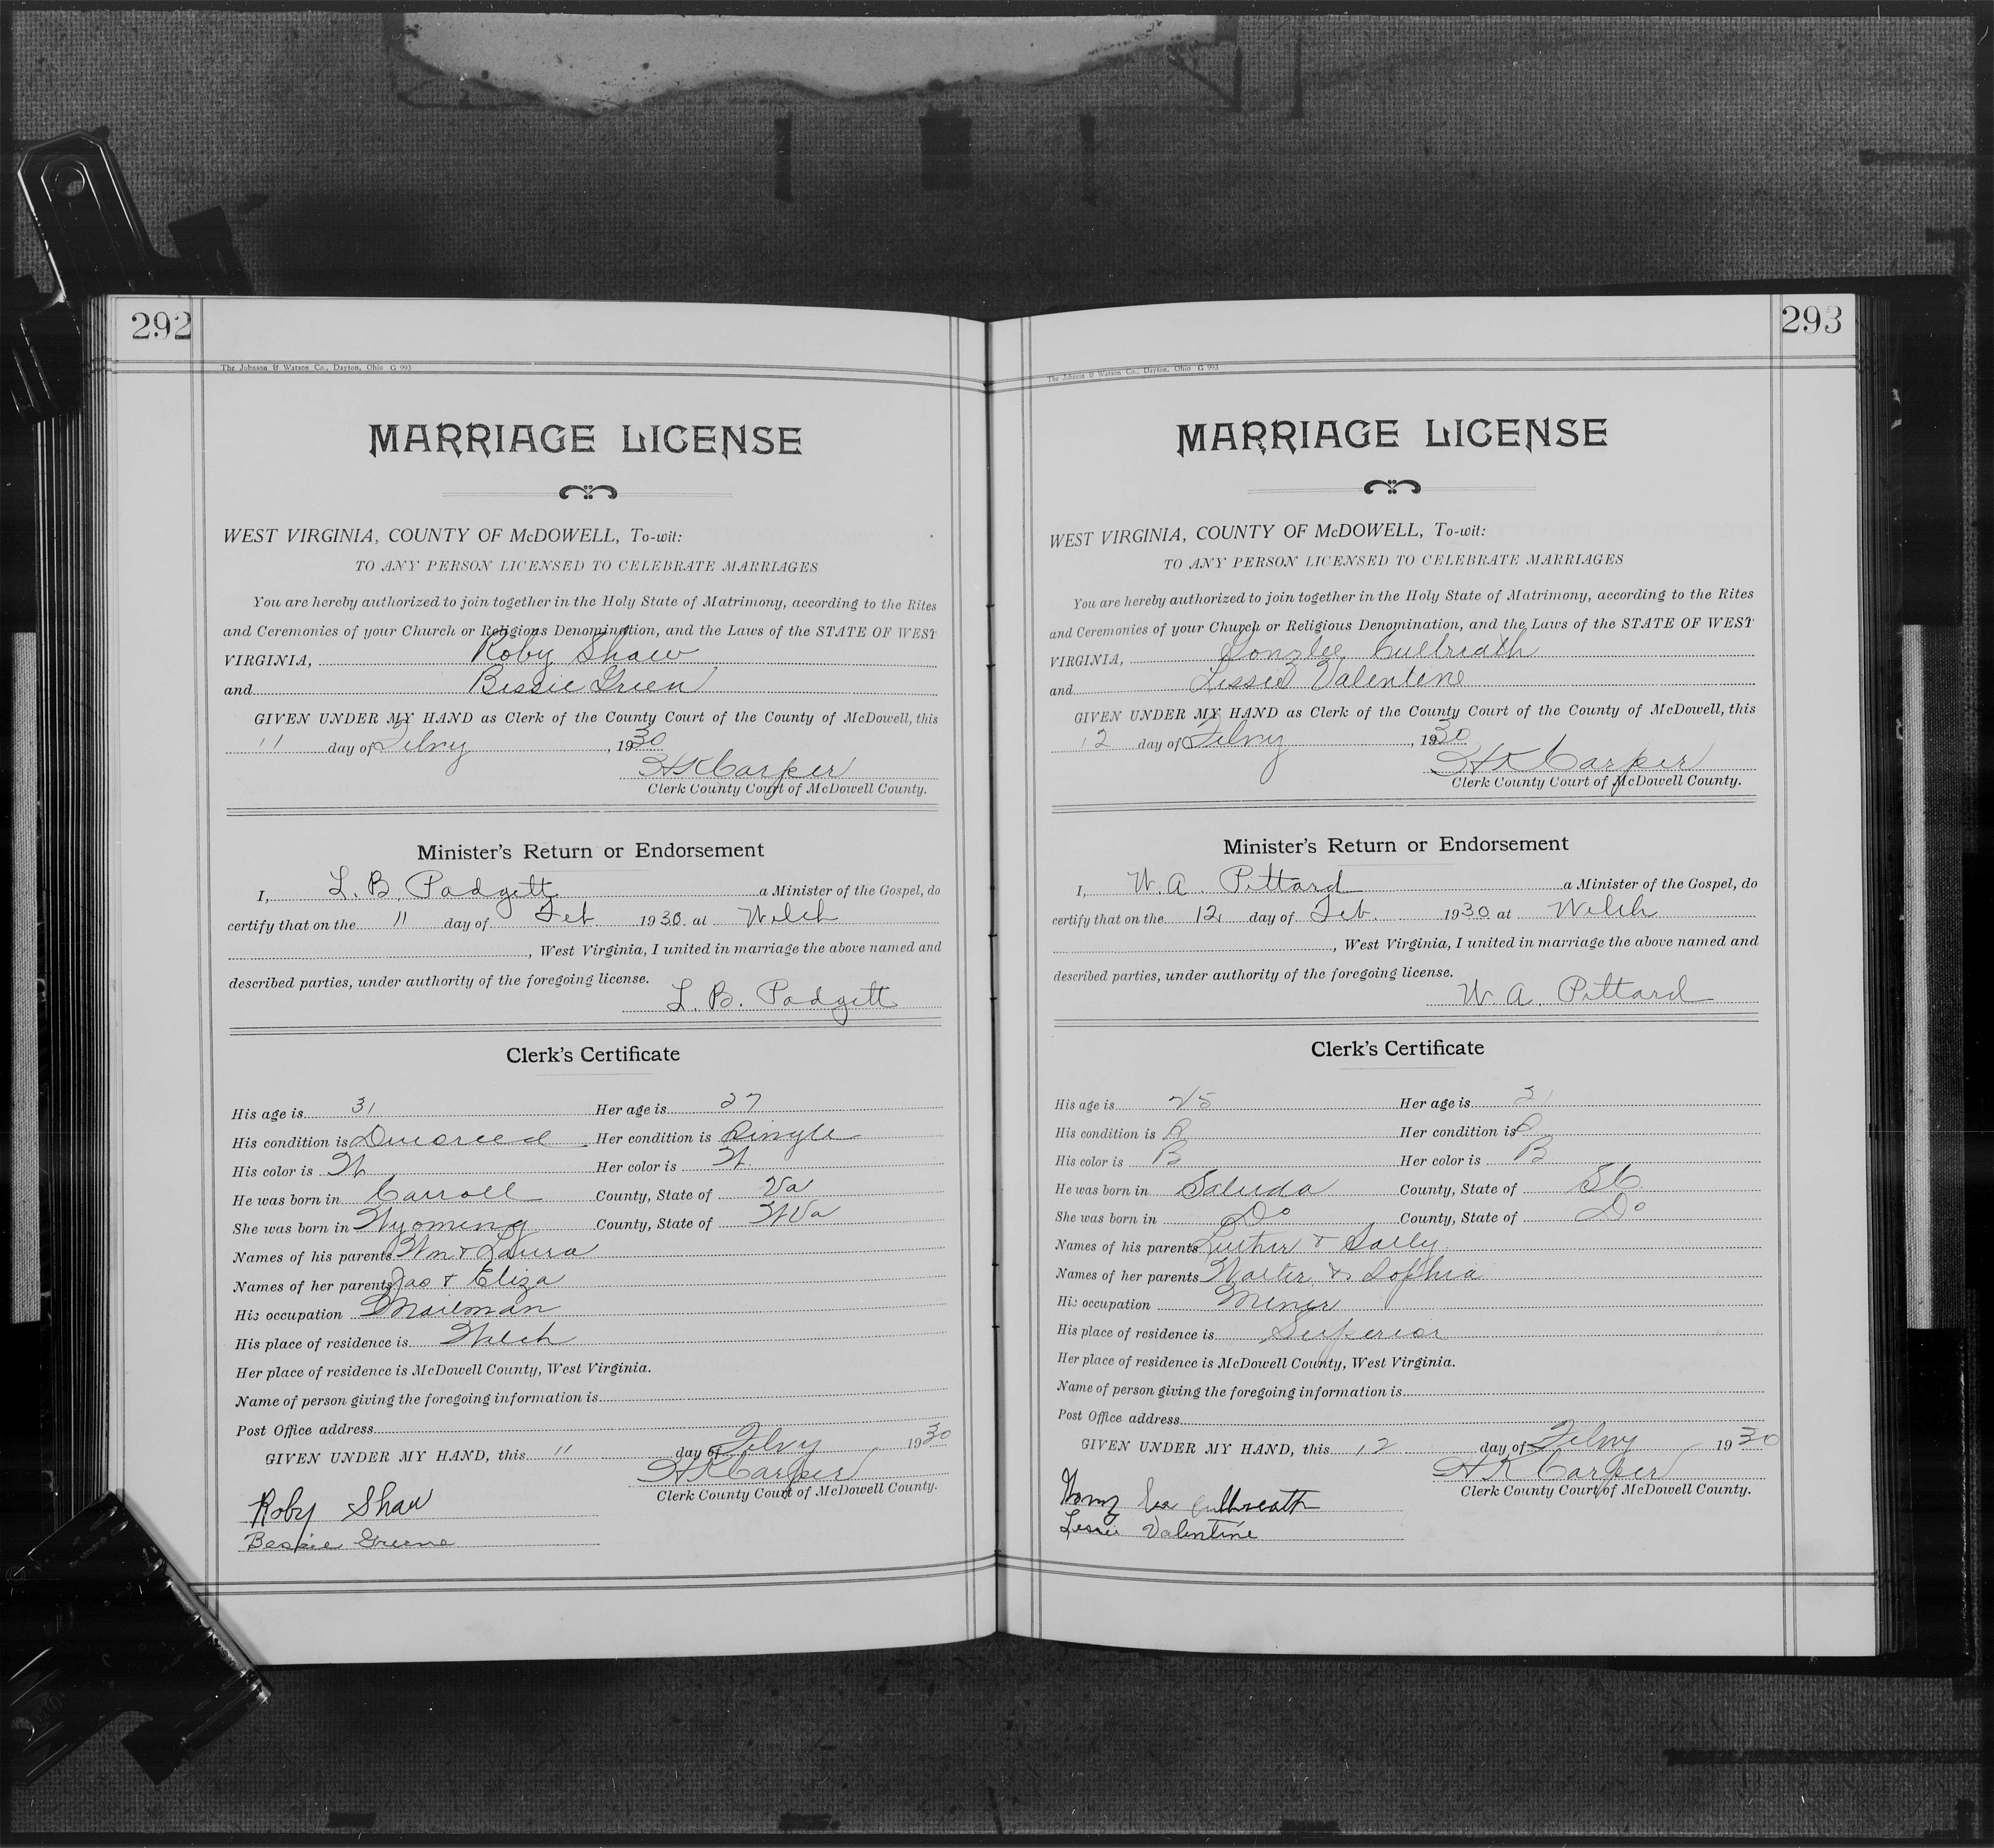 292
The Johnson & Watson Co., Dayton, Ohio G 993
MARRIAGE LICENSE
WEST VIRGINIA, COUNTY OF McDOWELL, To-wit:
TO ANY PERSON LICENSED TO CELEBRATE MARRIAGES
You are hereby authorized to join together in the Holy State of Matrimony, according to the Rites
and Ceremonies of your Church or Religious Denomination, and the Laws of the STATE OF WEST
VIRGINIA, Roby Shaw
and Bessie Green
GIVEN UNDER MY HAND as Clerk of the County Court of the County of McDowell, this
11 day of Febry, 1930
H K Carper
Clerk County Court of McDowell County.
Minister's Return or Endorsement
I, L. B. Padgett a Minister of the Gospel, do
certify that on the 11 day of Feb 1930 at Welch
, West Virginia, I united in marriage the above named and
described parties, under authority of the foregoing license.
L. B. Padgett
Clerk's Certificate
His age is 31 Her age is 27
His condition is Divorced Her condition is Single
His color is W Her color is W.
He was born in Carroll County, State of Va
She was born in Wyoming County, State of WVa
Names of his parents Wm & Laura
Names of her parents Jas & Eliza
His occupation Mailman
His place of residence is Welch
Her place of residence is McDowell County, West Virginia.
Name of person giving the foregoing information is
Post Office address
GIVEN UNDER MY HAND, this 11 day of Febry 1930
H K Carper
Clerk County Court of McDowell County.
Roby Shaw
Bessie Greene
293
The Johnson & Watson Co., Dayton, Ohio G 993
MARRIAGE LICENSE
WEST VIRGINIA, COUNTY OF McDOWELL, To-wit:
TO ANY PERSON LICENSED TO CELEBRATE MARRIAGES
You are hereby authorized to join together in the Holy State of Matrimony, according to the Rites
and Ceremonies of your Church or Religious Denomination, and the Laws of the STATE OF WEST
VIRGINIA, Culbreath
and Lessie Valentine
GIVEN UNDER MY HAND as Clerk of the County Court of the County of McDowell, this
12 day of Febry, 1930
H K Carper
Clerk County Court of McDowell County.
Minister's Return or Endorsement
I, W. A. Pittard a Minister of the Gospel, do
certify that on the 12 day of Feb. 1930 at Welch
, West Virginia, I united in marriage the above named and
described parties, under authority of the foregoing license.
W. A. Pittard
Clerk's Certificate
His age is 25 Her age is 21
His condition is S Her condition is S
His color is B Her color is B
He was born in Saluda County, State of SC
She was born in Do County, State of Do
Names of his parents Luther & Sally
Names of her parents Walter & Sophia
His occupation Miner
His place of residence is Superior
Her place of residence is McDowell County, West Virginia.
Name of person giving the foregoing information is
Post Office address
GIVEN UNDER MY HAND, this 12 day of Febry 1930
H K Carper
Clerk County Court of McDowell County.
Culbreath
Lessie Valentine